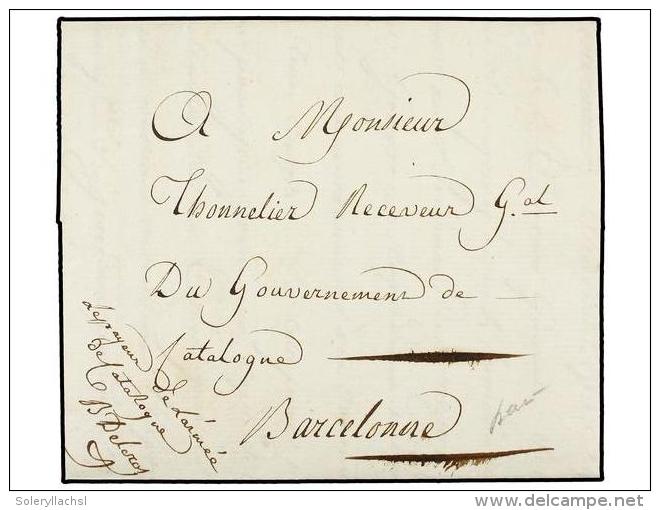 A Monsieur
Thonnelier Receveur G.al
Du Gouvernement de
Catalogne
Barcelonne
Le payeur de L'armée
De Catalogne
Soleryllachsl
delcampe.net